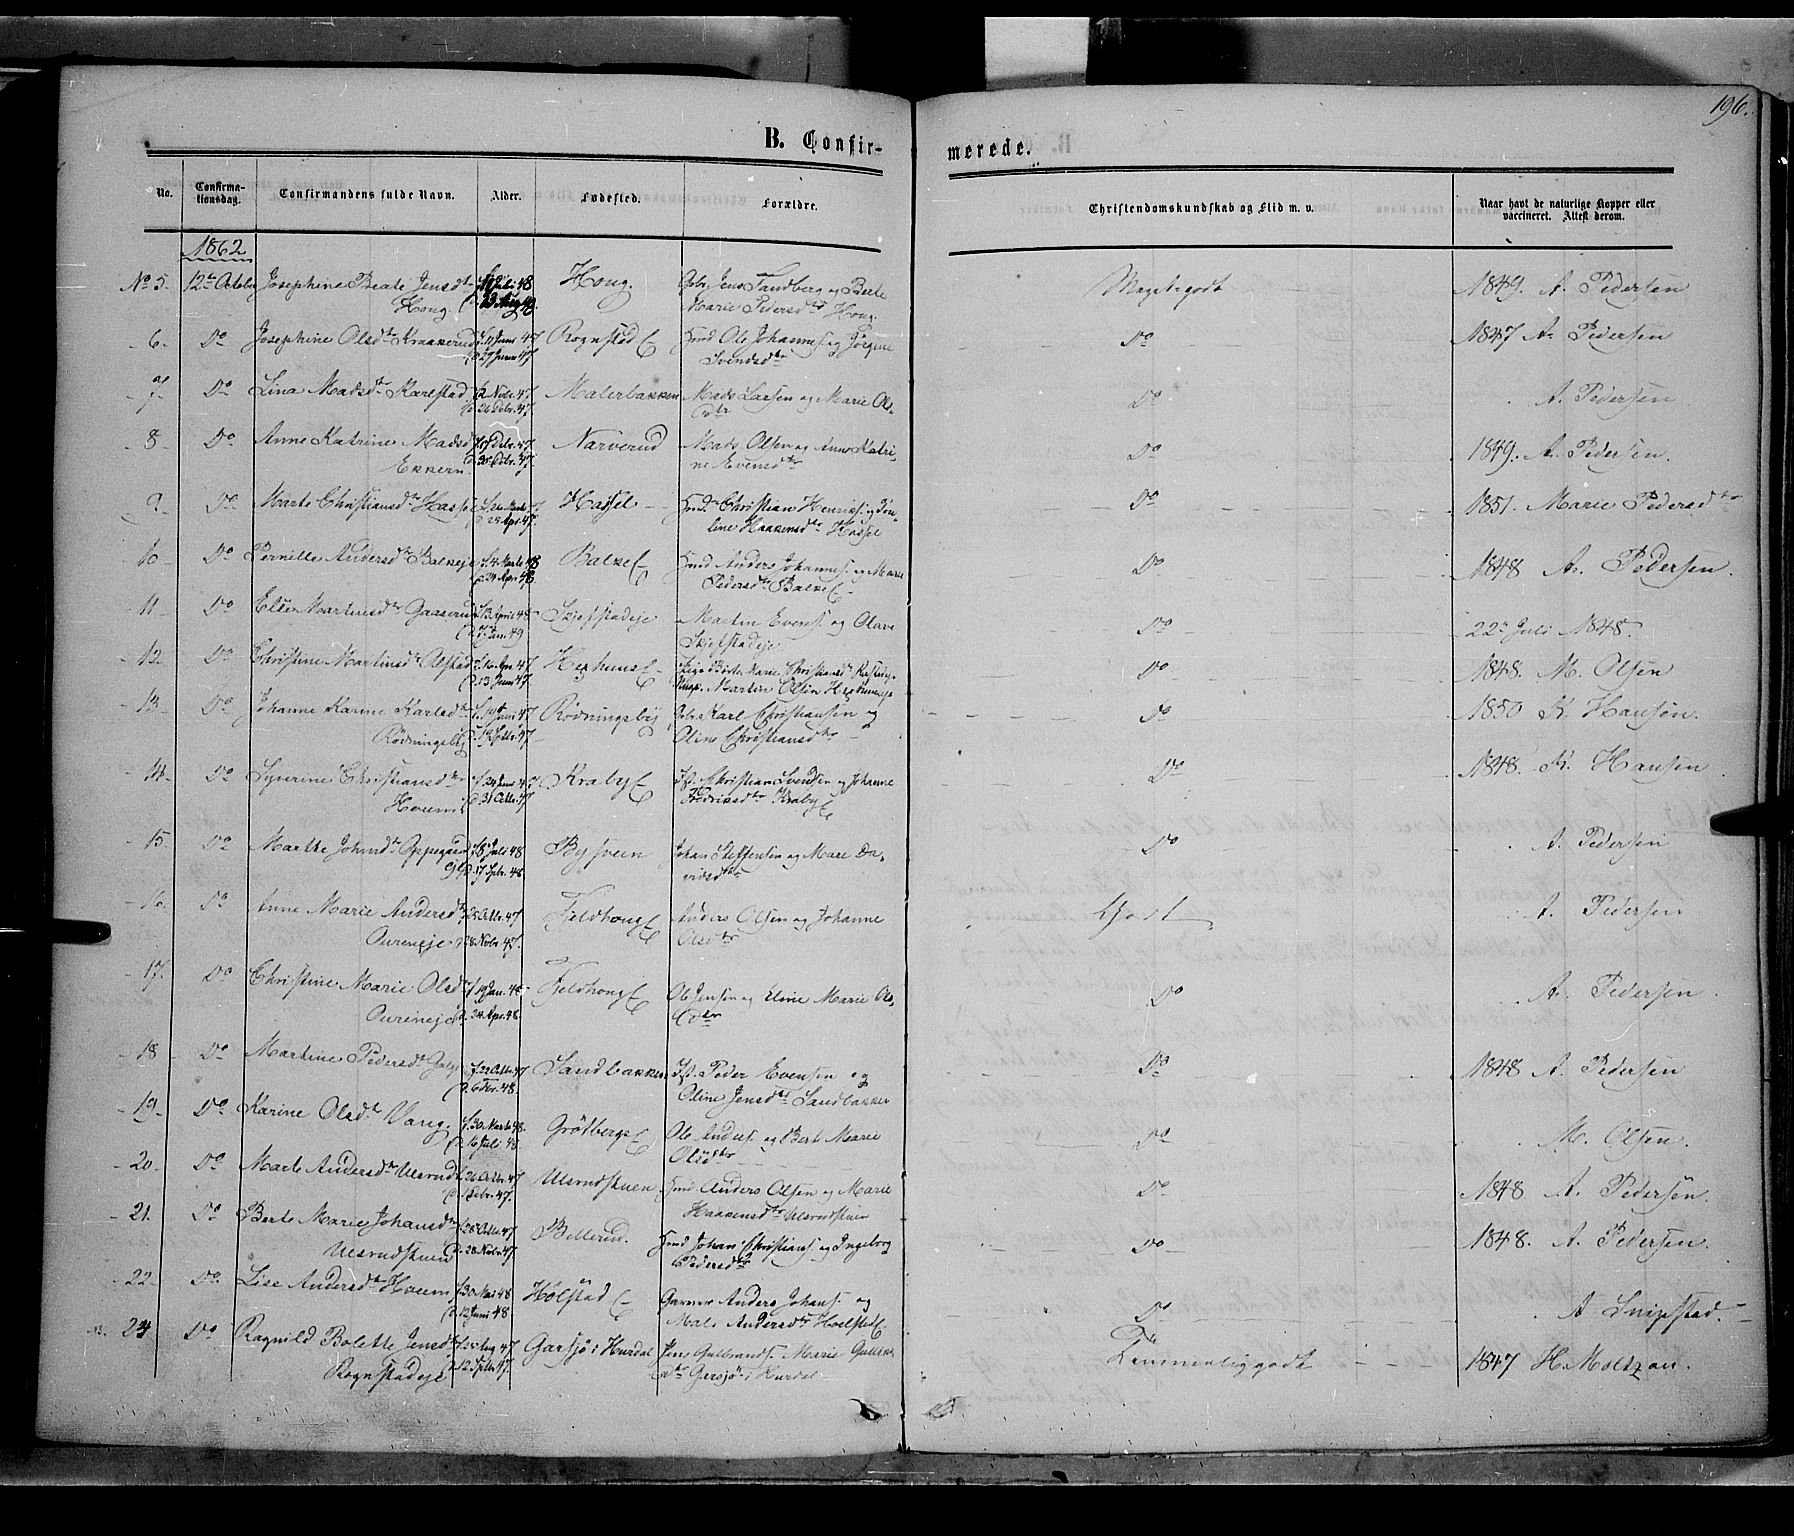 196.
B. Confir-
merede.
No.
Confirma-
tionsdag.
Confirmandens fulde Navn.
Alder.
Fødested.
Forældre.
Christendomskundskab og Flid m. v.
Naar havt de naturlige Kopper eller
vaccineret. Attest derom.
1862
No 5. 12te October Josephine Beate Jensdtr Houg. Houg. Jens Sandberg og Berte Marie Pedersdtr Houg. Meget godt 1849. A. Pedersen
6. Do Josephine Olsdtr Kraakerud f. 11 Juni 47 29 Juni 47 Rognstad Ole Johannes. og Jørgine Svendsdtr Do 1847 A. Pedersen
7. Do Lina Madsdtr Karlstad 2 Novbr. 47 26 Debr. 47. Malerbakken Mads Larsen og Marie Olsdtr Do A. Pedersen
8 Do Anne Katrine Madsd Ekkern Narverud Mads Olsen og Anne Katrine Evensdtr Do 1849. A. Pedersen.
9. Do Marte Christiansdtr Hassel 25 Apr. 47. Hassel Christian Henriks. og Haakensdtr Hassel Do 1851. Marie Pedersdtr
10 Do Pernille Andersdtr Balkeje f. 4 Marts 48 24 Apr. 48. Balke Anders Johannes. og Marie Pedersdtr Balke Do 1848 A. Pedersen.
11 Do Else Martinsdtr Gaaserud 13 April 48 Jan. 49 Skjefstadeje Martin Evens. og Olave Skjefstadeje Do 22de Juli 1848.
12. Do Christine Martinsdtr Alstad f. 16 Apr. 47 13 Juni 47. Hexhums Pige Birte Marie Christiansdtr Martin Olsen Do 1848. M. Olsen
13. Do Johanne Karine Karlsdtr Rødningsby 19 Septbr. 47 Rødningsby Karl Christiansen og Oline Christiansdtr Do 1850 K. Hansen.
14. Do Christiansdtr Hveem f. 24 Juni 47 31 Octbr. 47 Kraby Christian Svendsen og Johanne Fredriksdtr Kraby Do 1848. K. Hansen
15 Do Marthe Johansdtr Oppegaard 8 Juli 48 17 Spbr. 48 Bysveen Johan Steffensen og Mare Davidsdtr Do A. Pedersen
16. Do Anne Marie Andersdtr Oureneje 25 Octbr. 47 28 Novbr. 47. Fjeldhoug Anders Olsen og Johanne Olsdtr Godt A. Pedersen
17. Do Christine Marie Olsd Oureneje 19 Jan. 48 24 Apr. 48. Fjeldhoug Ole Jensen og Eline Marie Olsdtr Do A. Pedersen
18 Do Martine Pedersdtr f. 22 Octbr. 47 6 Febr. 48. Sandbakken Peder Evensen og Oline Jensdtr Sandbakken Do 1848 A. Pedersen
19. Do Karine Olsdtr Vang. f. 30 Marts 48. 16 Juli 48. Grötbergs Ole Anders. og Bert Marie Olsdtr Do M. Olsen.
20. Do Marte Andersdtr Ulsrud f. 26 Octbr. 47 Debr. 47. Ulsrudstuen Anders Olsen og Marie Haakensdtr Ulsrudstuen Do 1848 A. Pedersen.
21. Do Berte Marie Johansdtr Ulsrudstuen 28 Octbr. 47 28 Novbr. 47. Billerud. Johan Christians. og Ingeborg Pedersdtr Do 1848. A. Pedersen.
22. Do Lise Andersdtr Hveem f. 30 Mai 48 12 Juni 48 Holstad Garver Anders Johans. og Andersdtr Hoelstad Do A Snipstad.
24 Do Ragnild Bolette Jensdtr Rognstadeje f. 25 Aug 47 12. Septbr. 47. Garsjø i Hurdal Jens Gulbrands. Marie Garsjø i Hurdal Temmelig godt 1847 H. Moltzau.